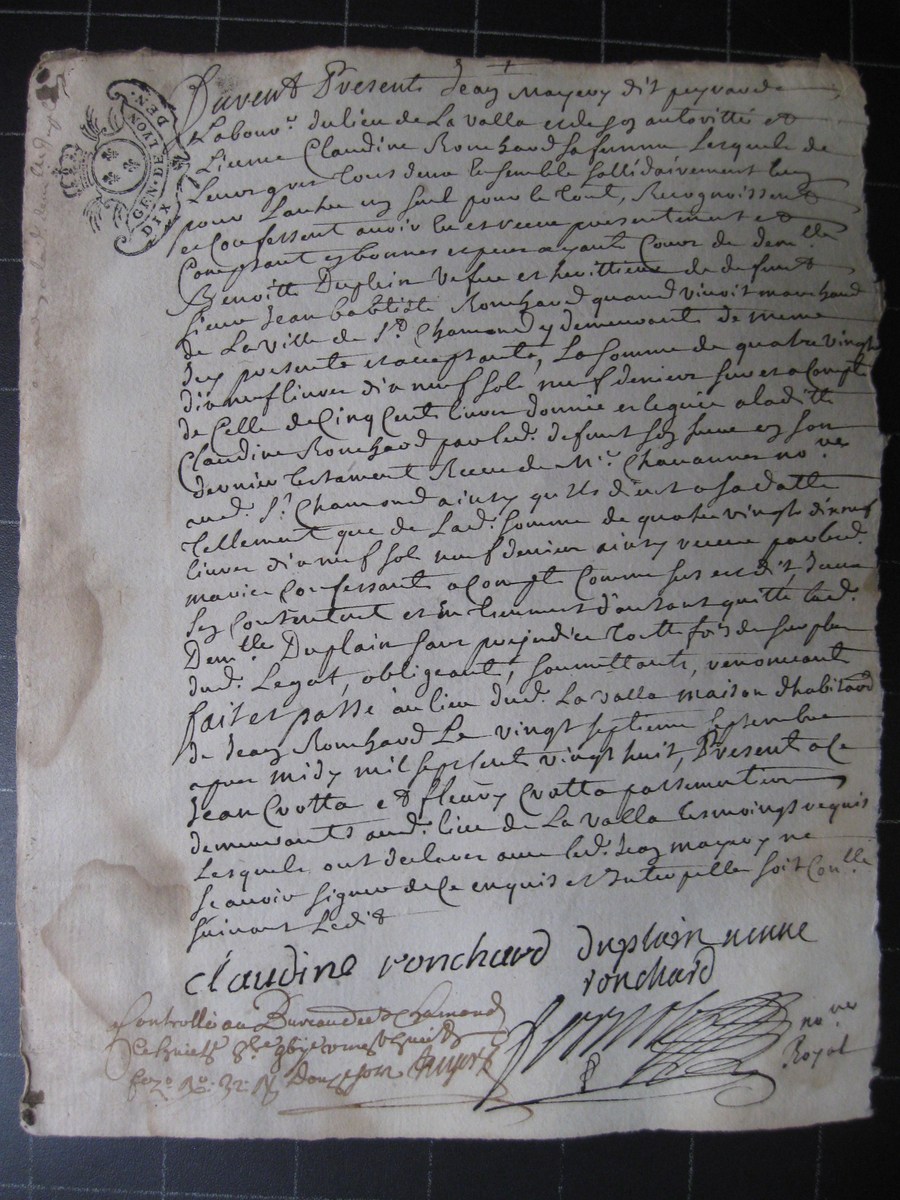 GEN. DE LYON
DIX DEN.
Furent Présents Jean Mayery dit peyrard
Labour.r du lieu de La valla et de son autoritté et
Licence Claudine Ronchard sa femme Lesquels de
Leur gré Tous deux Ensemble sollidairement l'un
pour L'autre un seul pour le Tout, Recognoissent
et Confessent avoir Eu et receu présentement et
Comptant en bonnes espèces ayants Cours de dem.lle
Benoitte Duplein Vefve et herittiere de deffunct
sieur Jean babtiste Ronchard quand vivoit marchand
de La Ville de S.t Chamond y demeurante de meme
icy presente et acceptante, La somme de quatre vingts
dix neuf livres dix neuf sols neuf deniers sur et a Compte
de Celle de Cinq Cents livres donnée et leguée a laditte
Claudine Ronchard par led. deffunt son frere en son
dernier testament Receu de M.e Chavannes no.re
aud. S.t Chamond ainsy qu'ils disent a sa datte
Tellement que de Lad. somme de quatre vingts dix neuf
livres dix neuf sols neuf deniers ainsy receue par lesd.
mariés Confessants a Compte Comme sus est dit, Iceux
s'en Contentent et En Tiennent d'autant quitte lad.
Dem.lle Duplain sans prejudice toutte fois du surplus
dud. Legat, obligeant, soumettants, renonceant
fait et passé au lieu dud. La valla maison d'habitaon
de Jean Ronchard Le vingt septieme septembre
apres midy mil sept cents vingt huit, Present a ce
Jean Crotta et fleury Crotta passementiers
demeurants aud. lieu de La valla tesmoings requis
Lesquels ont declaré avec led. Jean mayery ne
scavoir signer de Ce enquis et Interpellé soit Con.llé
suivant Ledit
claudine ronchard duplain veuve
ronchard
no.re
Royal
Controllé au Bureau de St Chamond